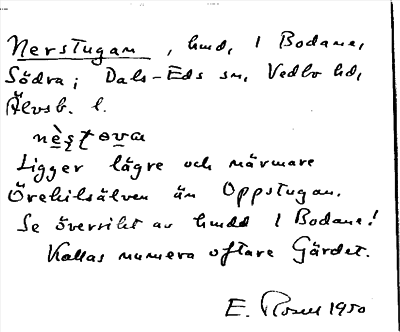 Nerstugan, hmd, 1 Bodane,
Södra; Dals-Eds sn, Vedbo hd,
Älvsb. l.
nèstova
Ligger lägre och närmare
Örekilsälven än Oppstugan.
Se översikt av hmdd 1 Bodane!
Kallas numera oftare Gärdet.
E. Rosell 1950